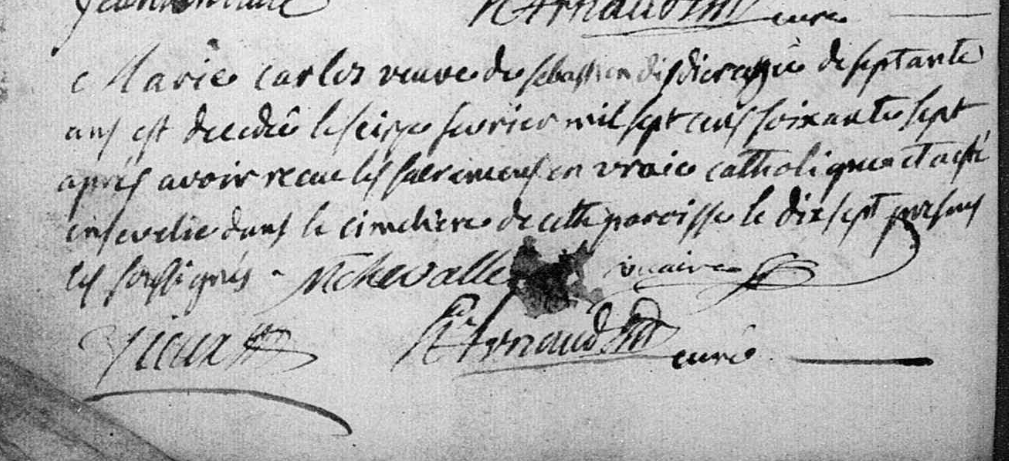 curé
Marie carles veuve de sebastien disdier agée de septante
ans est decedée le seise fevrier mil sept cens soixante sept
aprés avoir recue les sacremens en vraie catholique et a eté
insevelie dans le cimetiere de cette paroisse le dix sept presens
les soussignés. vicaire
Arnaud curé